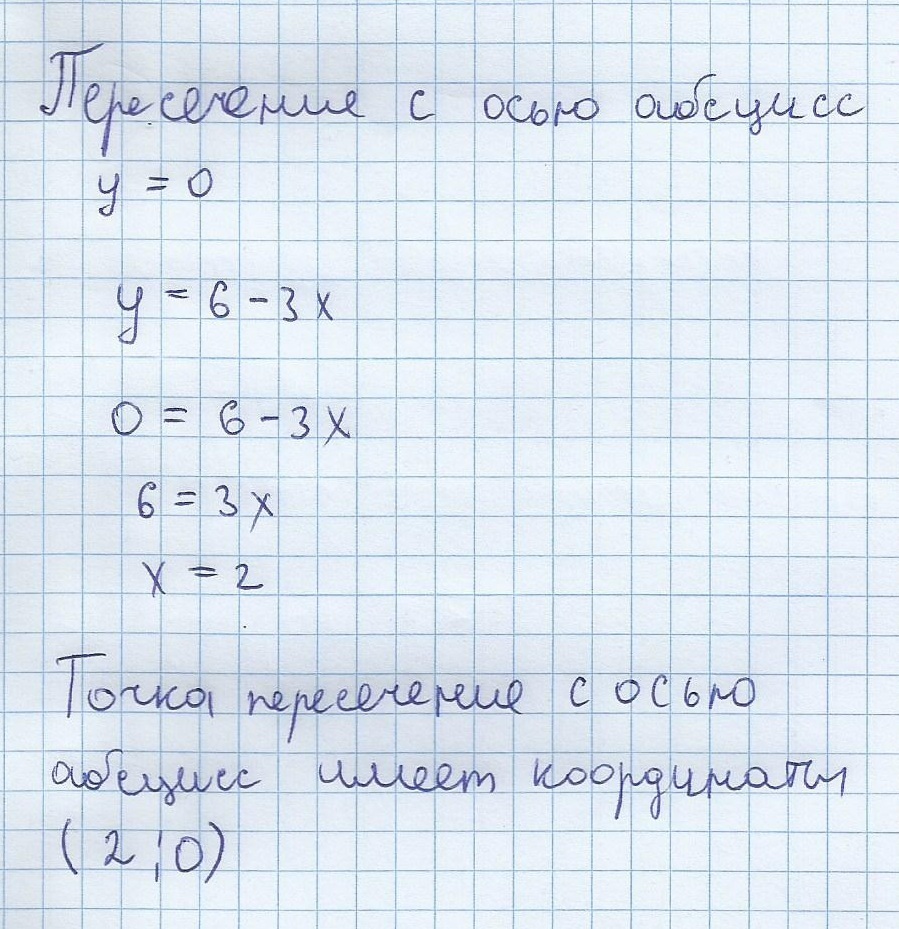 Пересечение с осью абсцисс
y = 0
y = 6 - 3x
0 = 6 - 3x
6 = 3x
x = 2
Точка пересечение с осью
абсцисс имеет координаты
(2;0)